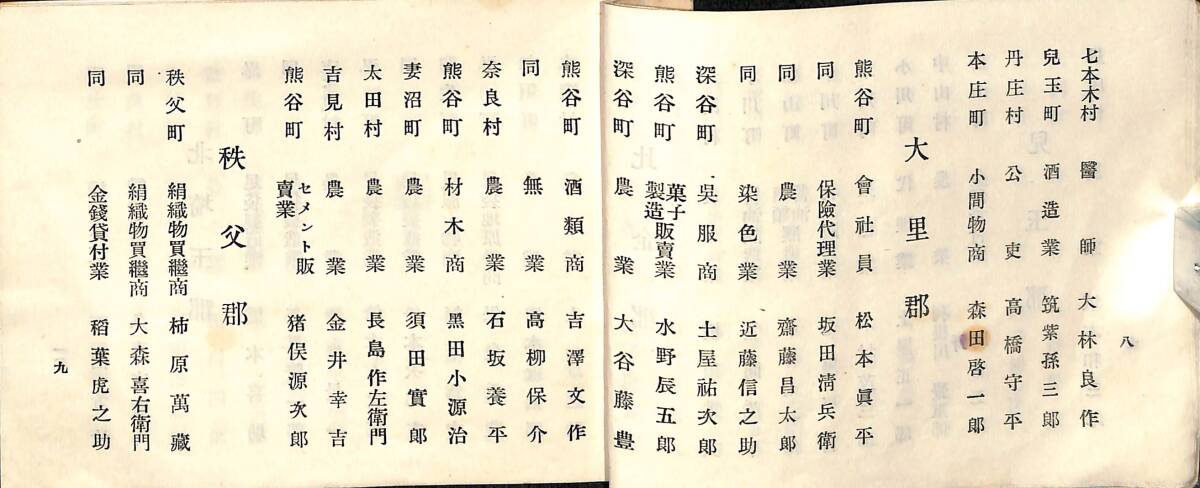 七本木村 醫師 大林良三作
兒玉町 酒造業 筑紫孫三郎
丹庄村 公吏 高橋守平
本庄町 小間物商 森田啓一郎
大里郡
熊谷町 會社員 松本眞平
同 保險代理業 坂田淸兵衛
同 農業 齋藤昌太郎
同 染色業 近藤信之助
深谷町 吳服商 土屋祐次郎
熊谷町 菓子製造販賣業 水野辰五郎
深谷町 農業 大谷藤豊
八
熊谷町 酒類商 吉澤文作
同 無業 高柳保介
奈良村 農業 石坂養平
熊谷町 材木商 黑田小源治
妻沼町 農業 須田實郎
太田村 農業 長島作左衛門
吉見村 農業 金井幸吉
熊谷町 セメント販賣業 猪俣源次郎
秩父郡
秩父町 絹織物買繼商 柿原萬藏
同 絹織物買繼商 大森喜右衛門
同 金錢貸付業 稻葉虎之助
九